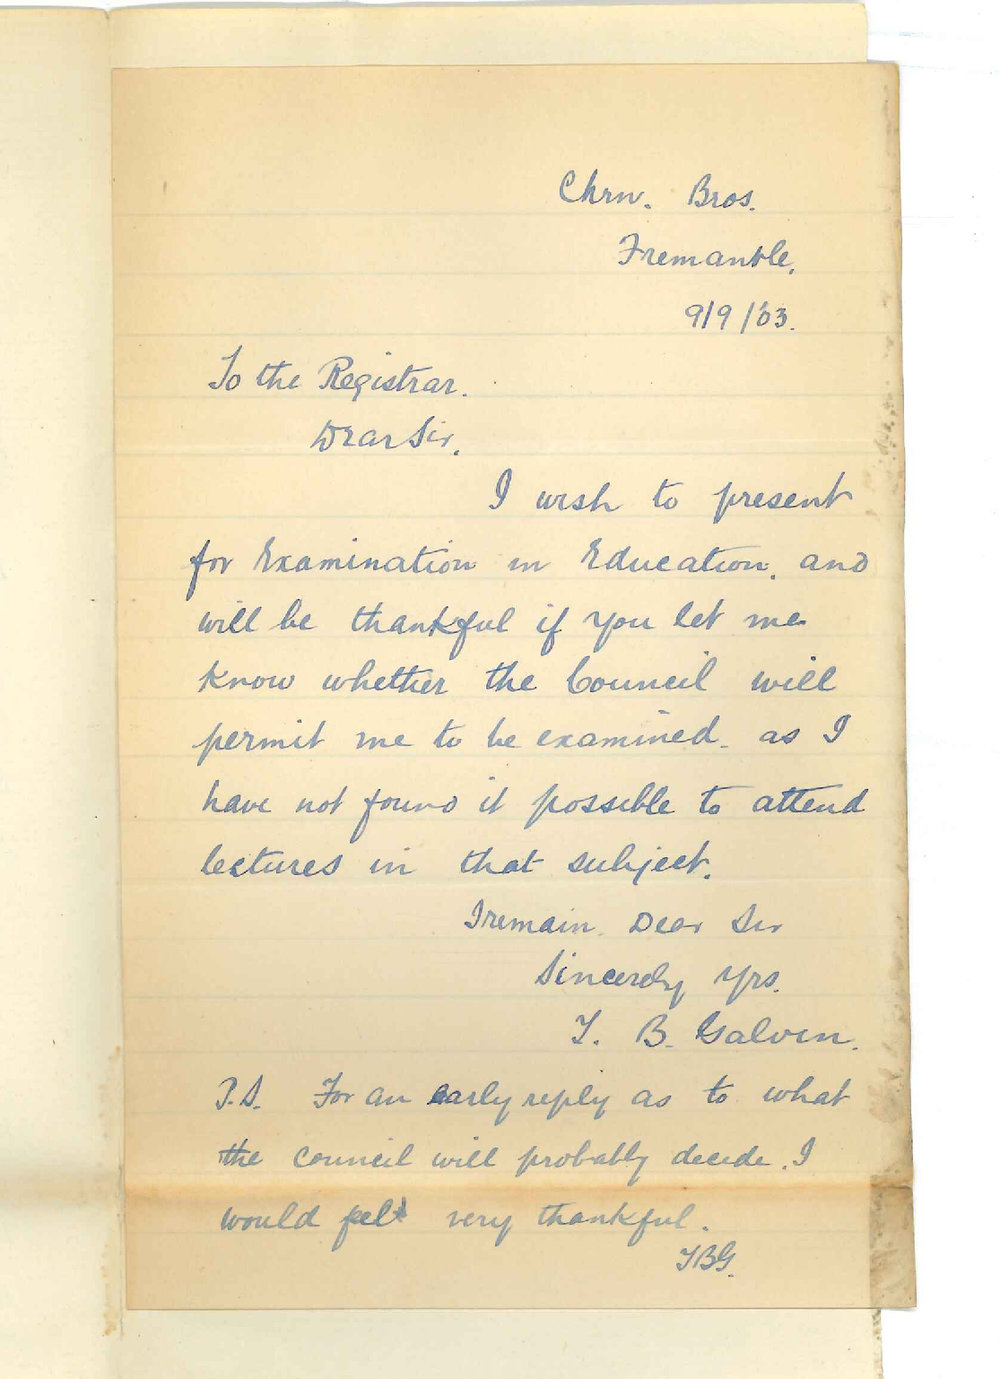 Chrn. Bros.
Fremantle,
9/9/33.
To the Registrar.
Dear Sir,
I wish to present
for Examination in Education, and
will be thankful if you let me
know whether the Council will
permit me to be examined as I
have not found it possible to attend
lectures in that subject.
I remain Dear Sir
Sincerely Yrs.
T. B. Galvin.
P.S. For an early reply as to what
the council will probably decide, I
would feel very thankful.
TBG.